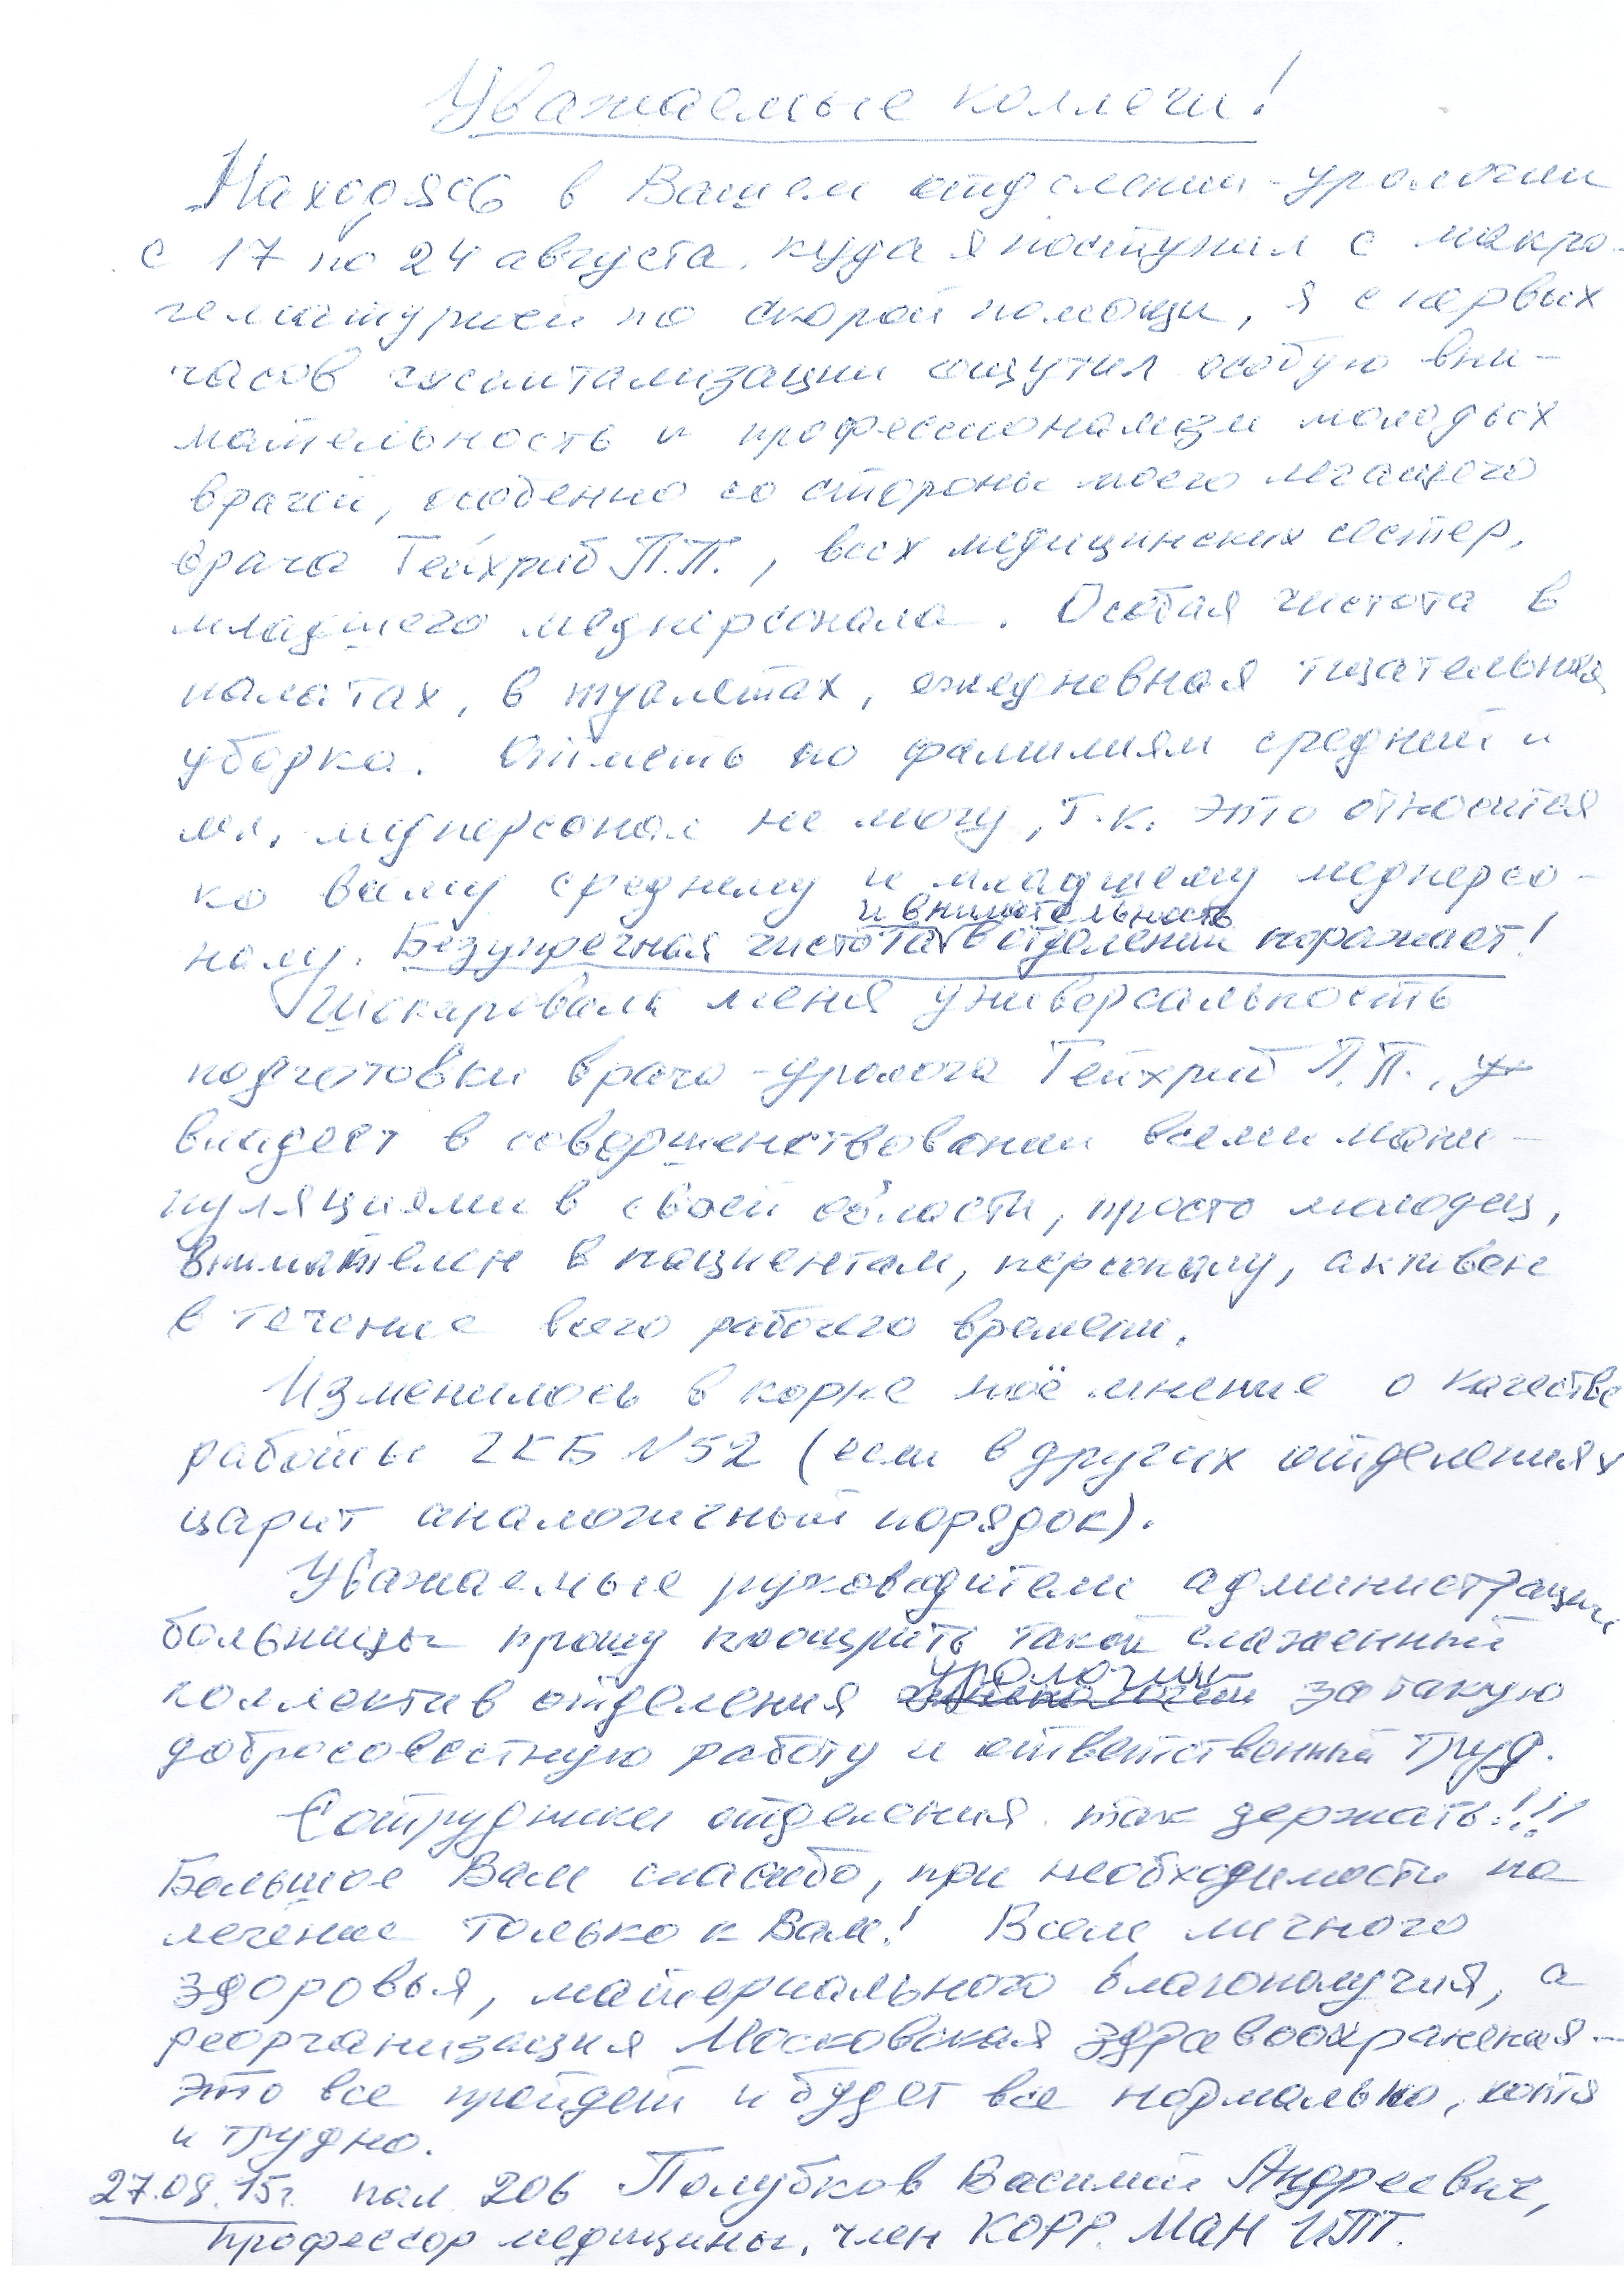 Уважаемые коллеги!
Находясь в Вашем отделении - урологии
с 17 по 24 августа, куда я поступил с макро-
гематурией по скорой помощи, я с первых
часов госпитализации ощутил особую вни-
мательность и профессионализм молодых
врачей, особенно со стороны моего лечащего
врача Гейхриб П.П., всех медицинских сестер,
младшего медперсонала. Особая чистота в
палатах, в туалетах, ежедневная тщательная
уборка. Отметь по фамилиям средний и
мл. медперсонал не могу, т.к. это относится
ко всему среднему и младшему медперсо-
налу. Безупречная чистота и внимательность в отделении поражает!
Шокировала меня универсальность
подготовки врача-уролога Гейхриб П.П.,
владеет в совершенствовании всеми мани-
пуляциями в своей области, просто молодец,
внимателен в пациентам, персоналу, активен
в течение всего рабочего времени.
Изменилось в корне моё мнение о качестве
работы ГКБ №52 (если в других отделениях
царит аналогичный порядок).
Уважаемые руководители администрации
больницы прошу поощрить такой слаженный
коллектив отделения урологии за такую
добросовестную работу и ответственный труд.
Сотрудники отделения так держать!!!
Большое Вам спасибо, при необходимости на
лечение только к Вам! Всем личного
здоровья, материального благополучия, а
реорганизация Московская здравоохранения -
это все пройдет и будет все нормально, хотя
и трудно.
27.08.15г. пал. 206 Полубков Василий Андреевич,
профессор медицины, член КОРР. МАН ИПТ.